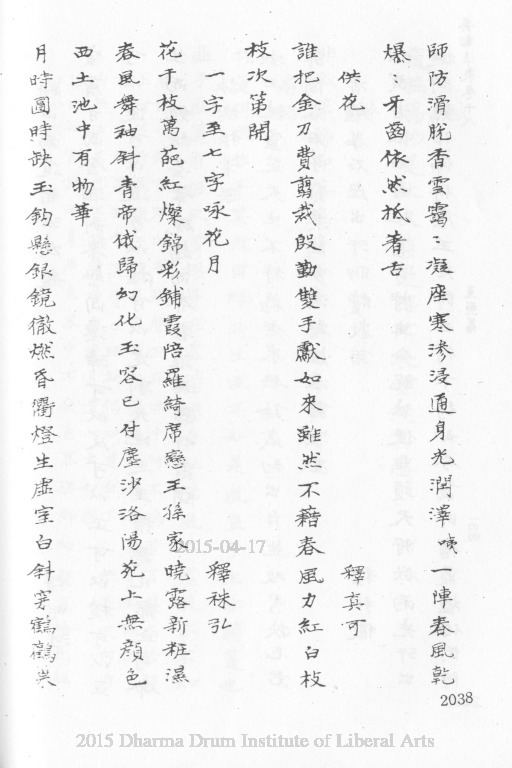 師防滑脫香雲靄〻凝座寒滲浸通身光潤澤 咦一陣春風乾
爆〻牙齒依然抵著舌
供花 釋真可
誰把金刀費翦裁殷勤雙手獻如來雖然不藉春風力紅白枝
枝次第開
一字至七字咏花月 釋袾弘
花千枝萬葩紅燦錦彩鋪霞陪羅綺席戀王孫家曉露新粧濕
春風舞袖斜青帝俄歸幻化玉容已付塵沙洛陽苑上無顏色
西土池中有物華
月時圓時缺玉鈎懸銀鏡徹燃昏衢燈生虛室白斜穿鶴鸛巢
2038
2015-04-17
2015 Dharma Drum Institute of Liberal Arts